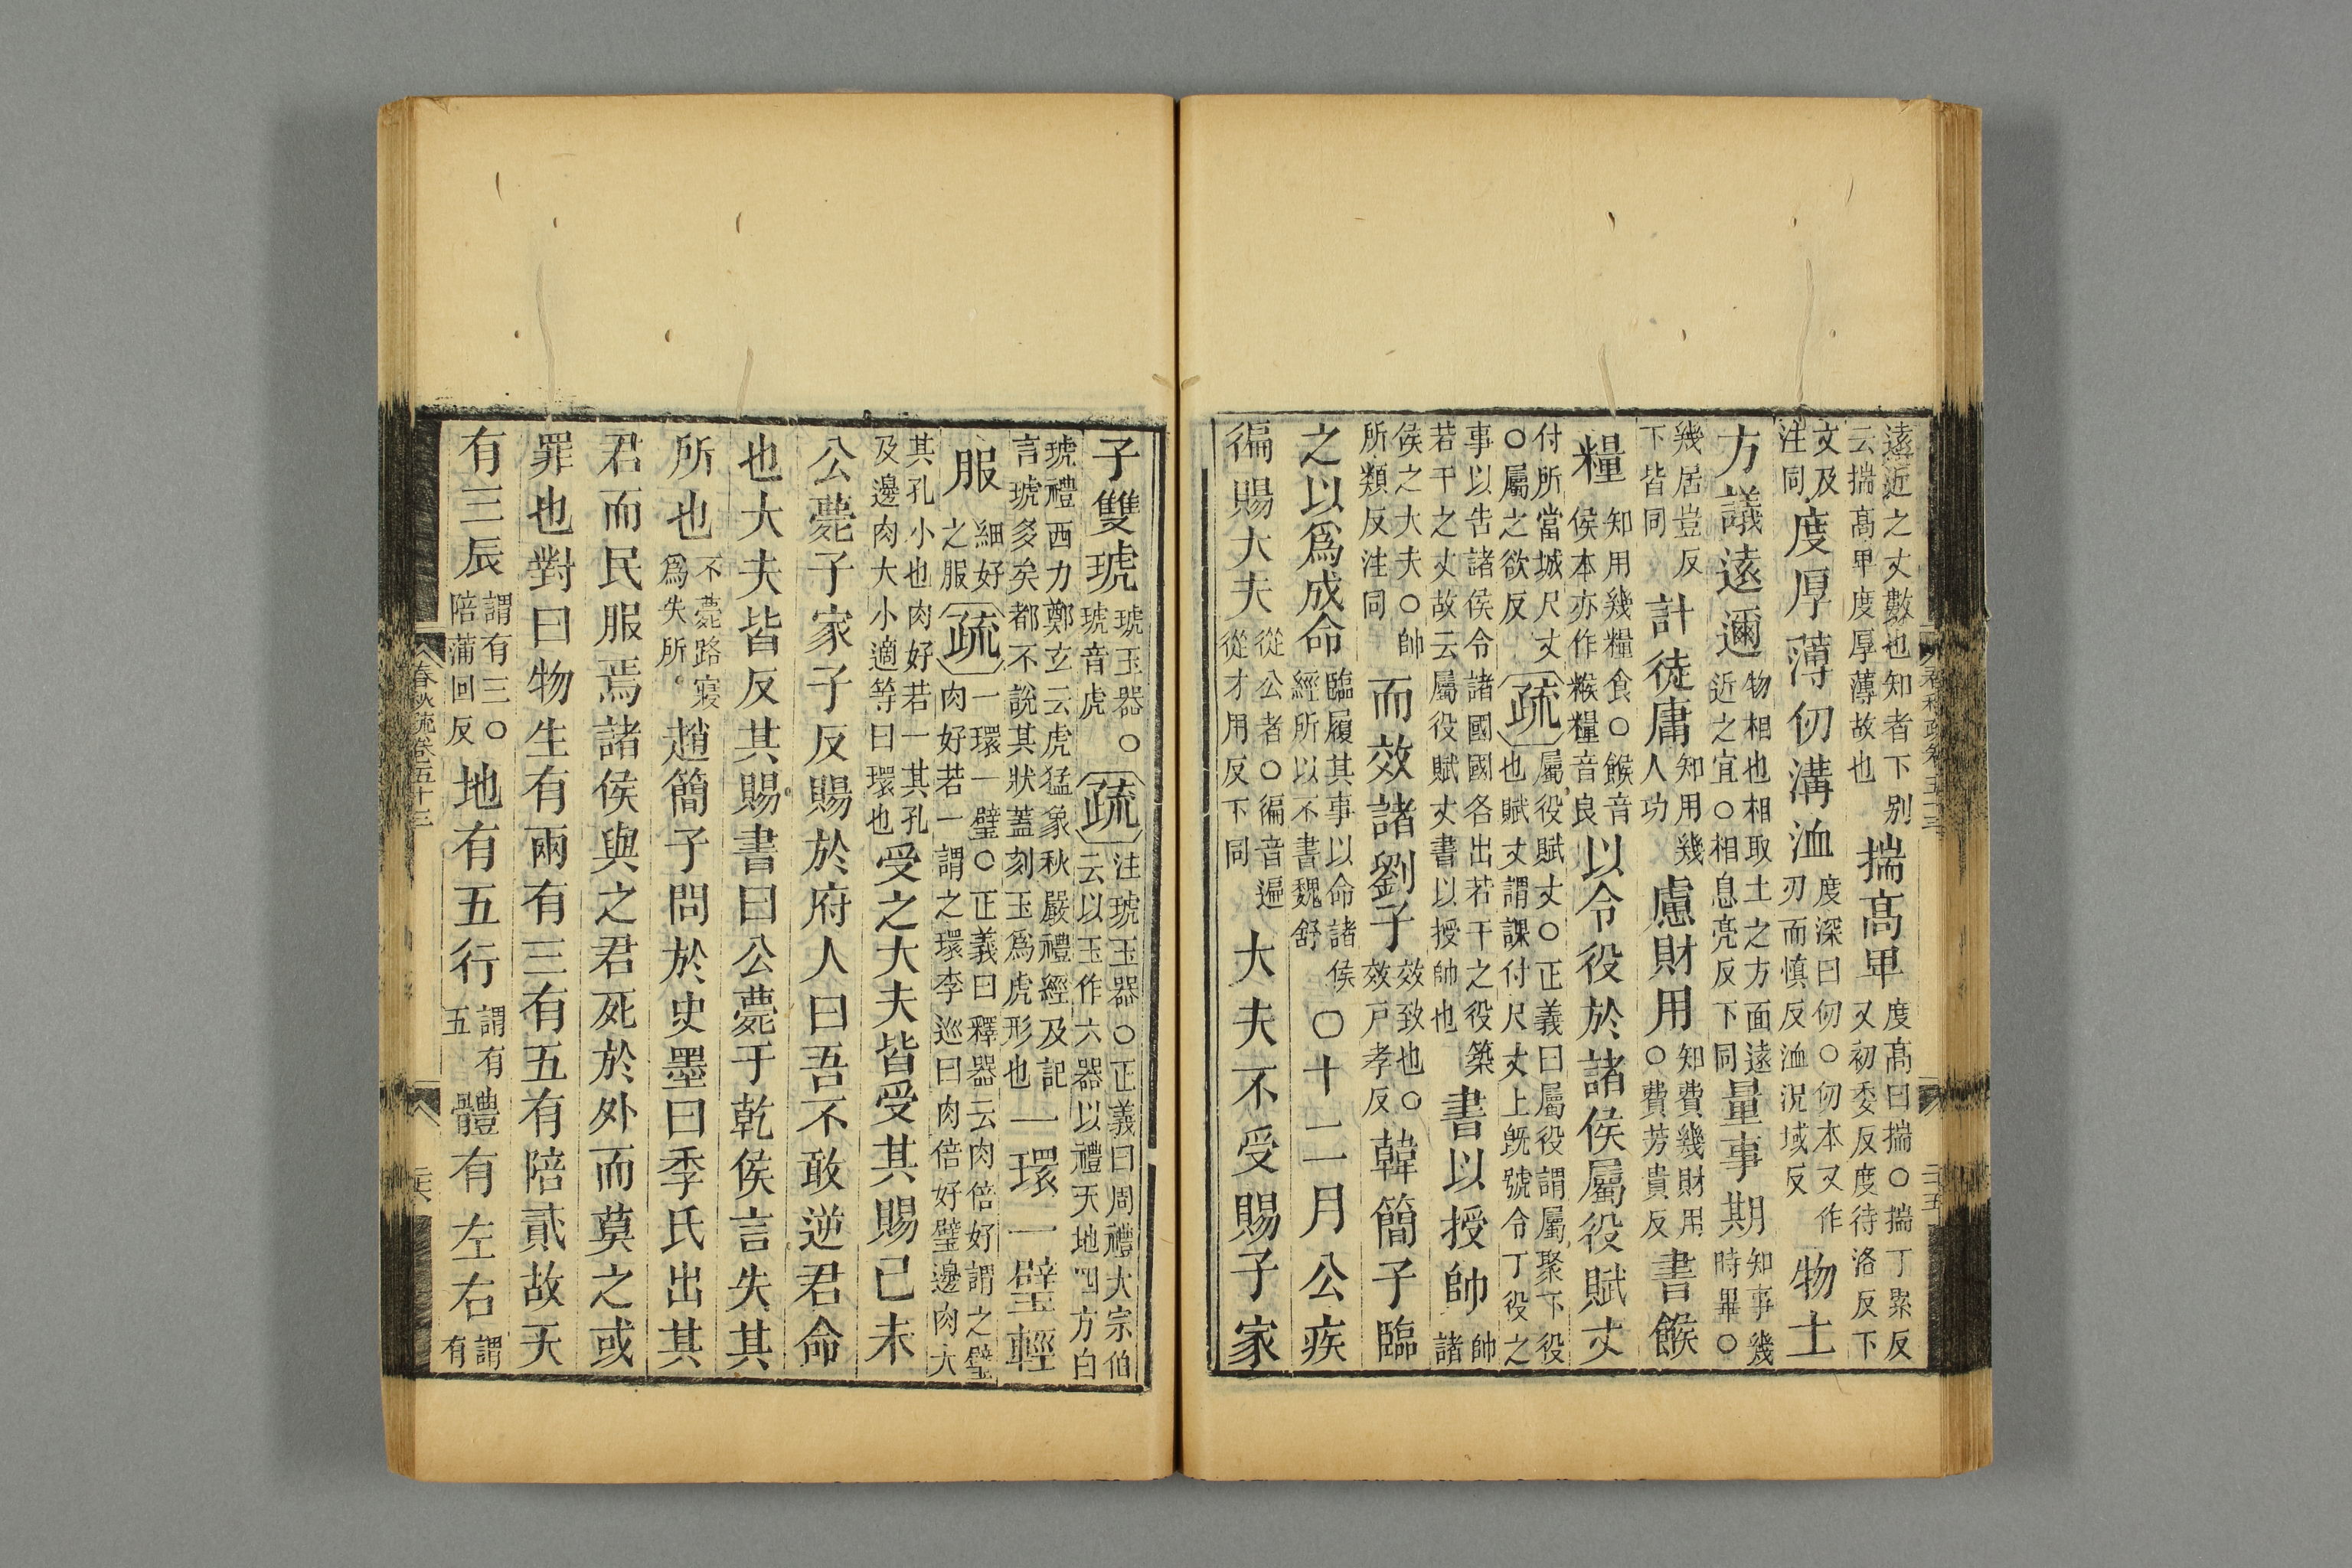 遠近之丈數也知者下別
云揣髙卑度厚薄故也
揣髙卑
度髙曰揣○揣丁累反
又初委反度待洛反下
文及
注同
度厚薄仞溝洫
度深曰仞○仞本又作
刃而慎反洫況域反
物土
方議遠邇
物相也相取土之方面遠
近之宜○相息亮反下同
量事期
知事幾
時畢○
幾居豈反
下皆同
計徒庸
知用幾
人功
慮財用
知費幾財用
○費芳貴反
書餱
糧
知用幾糧食○餱音
侯本亦作糇糧音良
以令役於諸侯屬役賦丈
付所當城尺丈
○屬之欲反
疏
屬役賦丈○正義曰屬役謂屬聚下役
也賦丈謂課付尺丈上旣號令丁役之
事以告諸侯令諸國國各出若干之役築
若干之丈故云屬役賦丈書以授帥也
書以授帥
帥
諸
侯之大夫○帥
所類反注同
而效諸劉子
效致也○
效戶孝反
韓簡子臨
之以爲成命
臨履其事以命諸侯
經所以不書魏舒
○十二月公疾
徧賜大夫
從公者○徧音遍
從才用反下同
大夫不受賜子家
子雙琥
琥玉器○
琥音虎
疏
注琥玉器○正義曰周禮大宗伯
云以玉作六器以禮天地四方白
琥禮西方鄭玄云虎猛象秋嚴禮經及記
言琥多矣都不說其狀蓋刻玉爲虎形也
一環一璧輕
服
細好
之服
疏
一環一璧○正義曰釋器云肉倍好謂之璧
肉好若一謂之環李巡曰肉倍好璧邊肉大
其孔小也肉好若一其孔
及邊肉大小適等曰環也
受之大夫皆受其賜已未
公薨子家子反賜於府人曰吾不敢逆君命
也大夫皆反其賜書曰公薨于乾侯言失其
所也
不薨路寢
爲失所
趙簡子問於史墨曰季氏出其
君而民服焉諸侯與之君死於外而莫之或
罪也對曰物生有兩有三有五有陪貳故天
有三辰
謂有三○
陪蒲回反
地有五行
謂有
五
體有左右
謂
有
春秋疏卷五十三